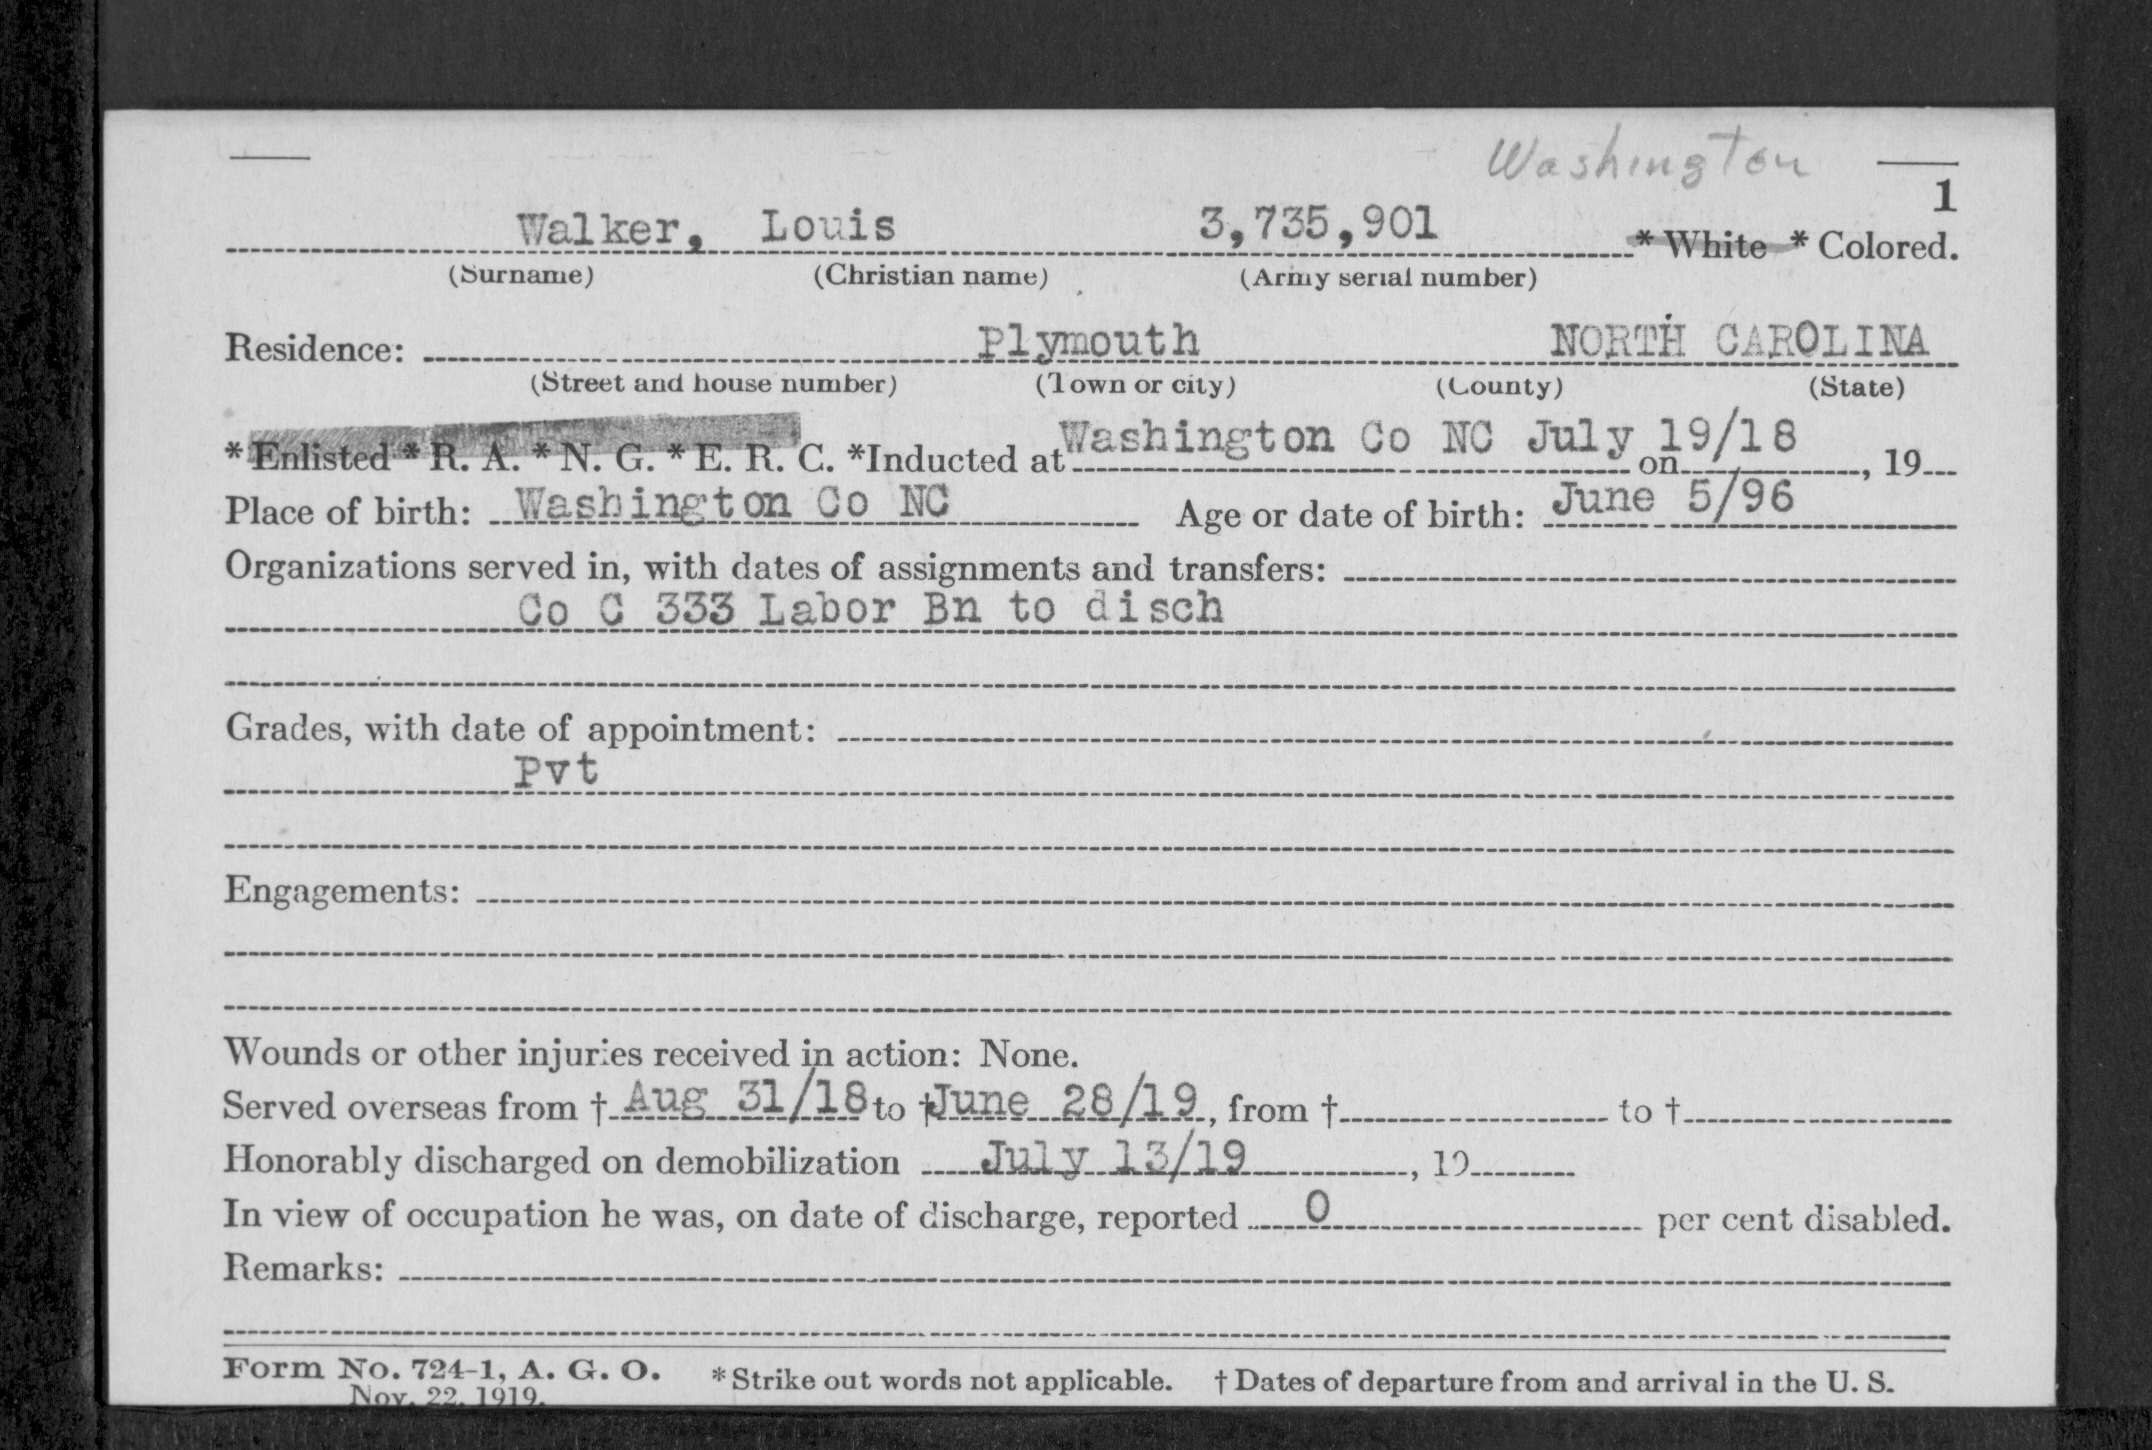 Washington
1
Walker, Louis 3,735,901 * White * Colored.
(Surname) (Christian name) (Army serial number)
Residence: Plymouth NORTH CAROLINA
(Street and house number) (Town or city) (County) (State)
* Enlisted * R. A. * N. G. * E. R. C. *Inducted at Washington Co NC on July 19/18, 19
Place of birth: Washington Co NC Age or date of birth: June 5/96
Organizations served in, with dates of assignments and transfers:
Co C 333 Labor Bn to disch
Grades, with date of appointment:
Pvt
Engagements:
Wounds or other injuries received in action: None.
Served overseas from † Aug 31/18 to † June 28/19, from † to †
Honorably discharged on demobilization July 13/19, 19
In view of occupation he was, on date of discharge, reported 0 per cent disabled.
Remarks:
Form No. 724-1, A. G. O. * Strike out words not applicable. † Dates of departure from and arrival in the U. S.
Nov. 22, 1919.